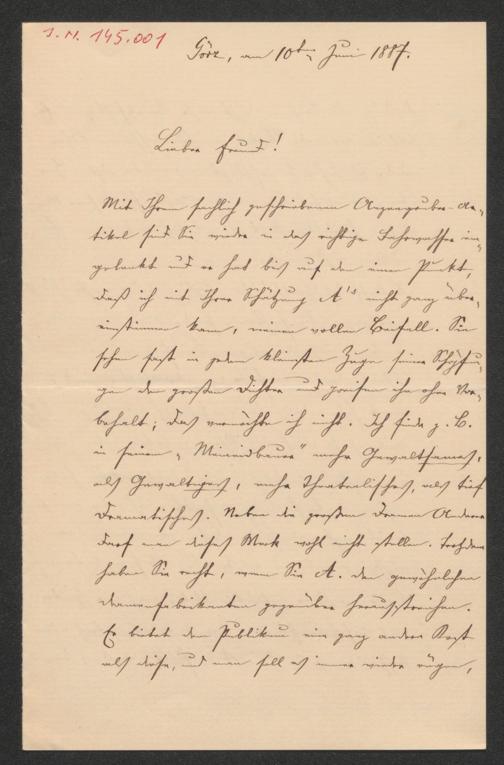 J. N. 145.001
Görz, am 10ten Juni 1887.
Lieber Freund!
Mit Ihrem sachlich geschriebenen Anzengruber-Ar-
tikel sind Sie wieder in das richtige Fahrwasser ein-
gelenkt und er hat bis auf den einen Punkt,
daß ich mit Ihrer Schätzung A's nicht ganz über-
einstimmen kann, meinen vollen Beifall. Sie
sehen fast in jedem kleinsten Zuge seiner Schöpfun-
gen den großen Dichter und preisen ihn ohne Vor-
behalt; das vermöchte ich nicht. Ich finde z. B.
in seinem „Meineidbauer" mehr Gewaltsames,
als Gewaltiges, mehr Theatralisches, als tief
Dramatisches. Neben die großen Dramen Anderer
darf man dieses Werk wohl nicht stellen. Trotzdem
haben Sie recht, wenn Sie A. den gewöhnlichen
Dramenfabrikanten gegenüber herausstreichen.
Er bietet dem Publikum eine ganz andere Kost
als diese, und man soll es immer wieder rügen,